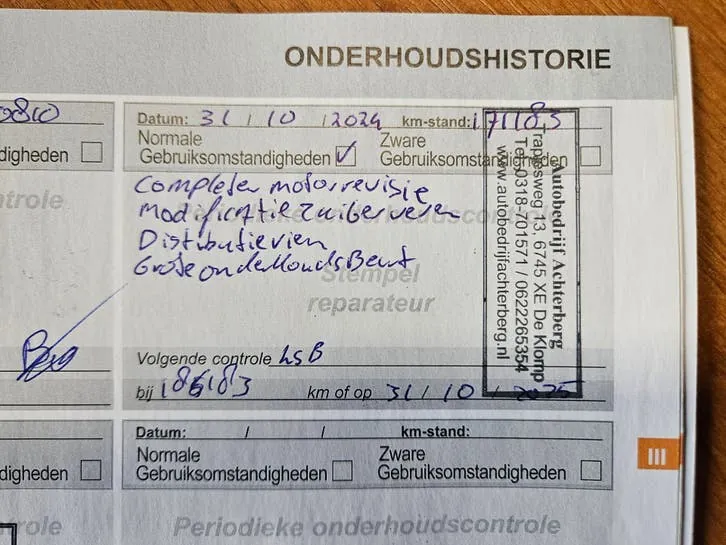 ONDERHOUDSHISTORIE
Datum: 31 / 10 / 2024 km-stand: 171183
Normale
Gebruiksomstandigheden
Zware
Gebruiksomstandigheden
digheden
trole
Completer motorrevisie
Modificatie zuigerveren
Distributierien
Grote onderhoudsBeurt
Periodieke onderhoudscontrole
Stempel
reparateur
Autobedrijf Achterberg
Trapjesweg 13, 6745 XE De Klomp
Tel. 0318-701571 / 0622265354
www.autobedrijfachterberg.nl
Volgende controle KsB
bij 186183 km of op 31 / 10 / 2025
III
Datum: / / km-stand:
Normale
Gebruiksomstandigheden
Zware
Gebruiksomstandigheden
digheden
role
Periodieke onderhoudscontrole